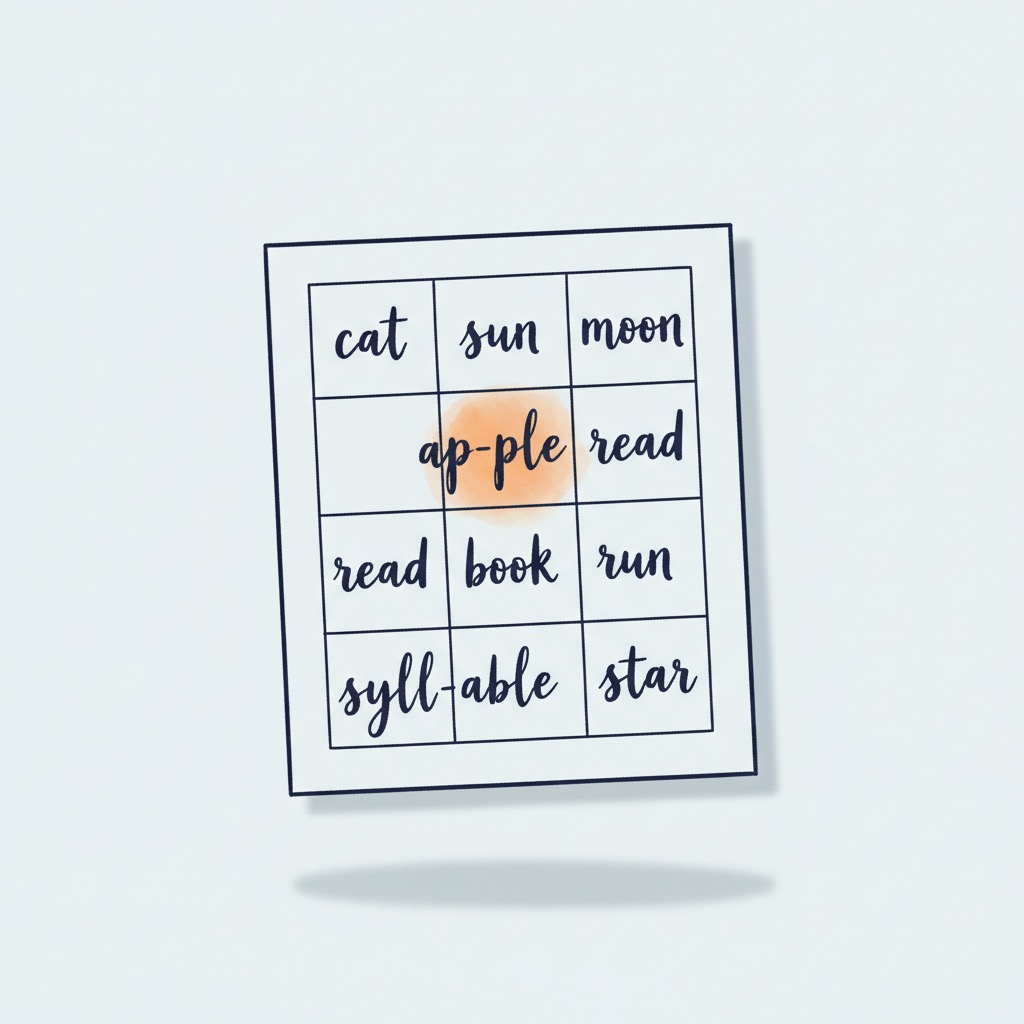 cat sun moon
ap-ple read
read book run
syll-able star